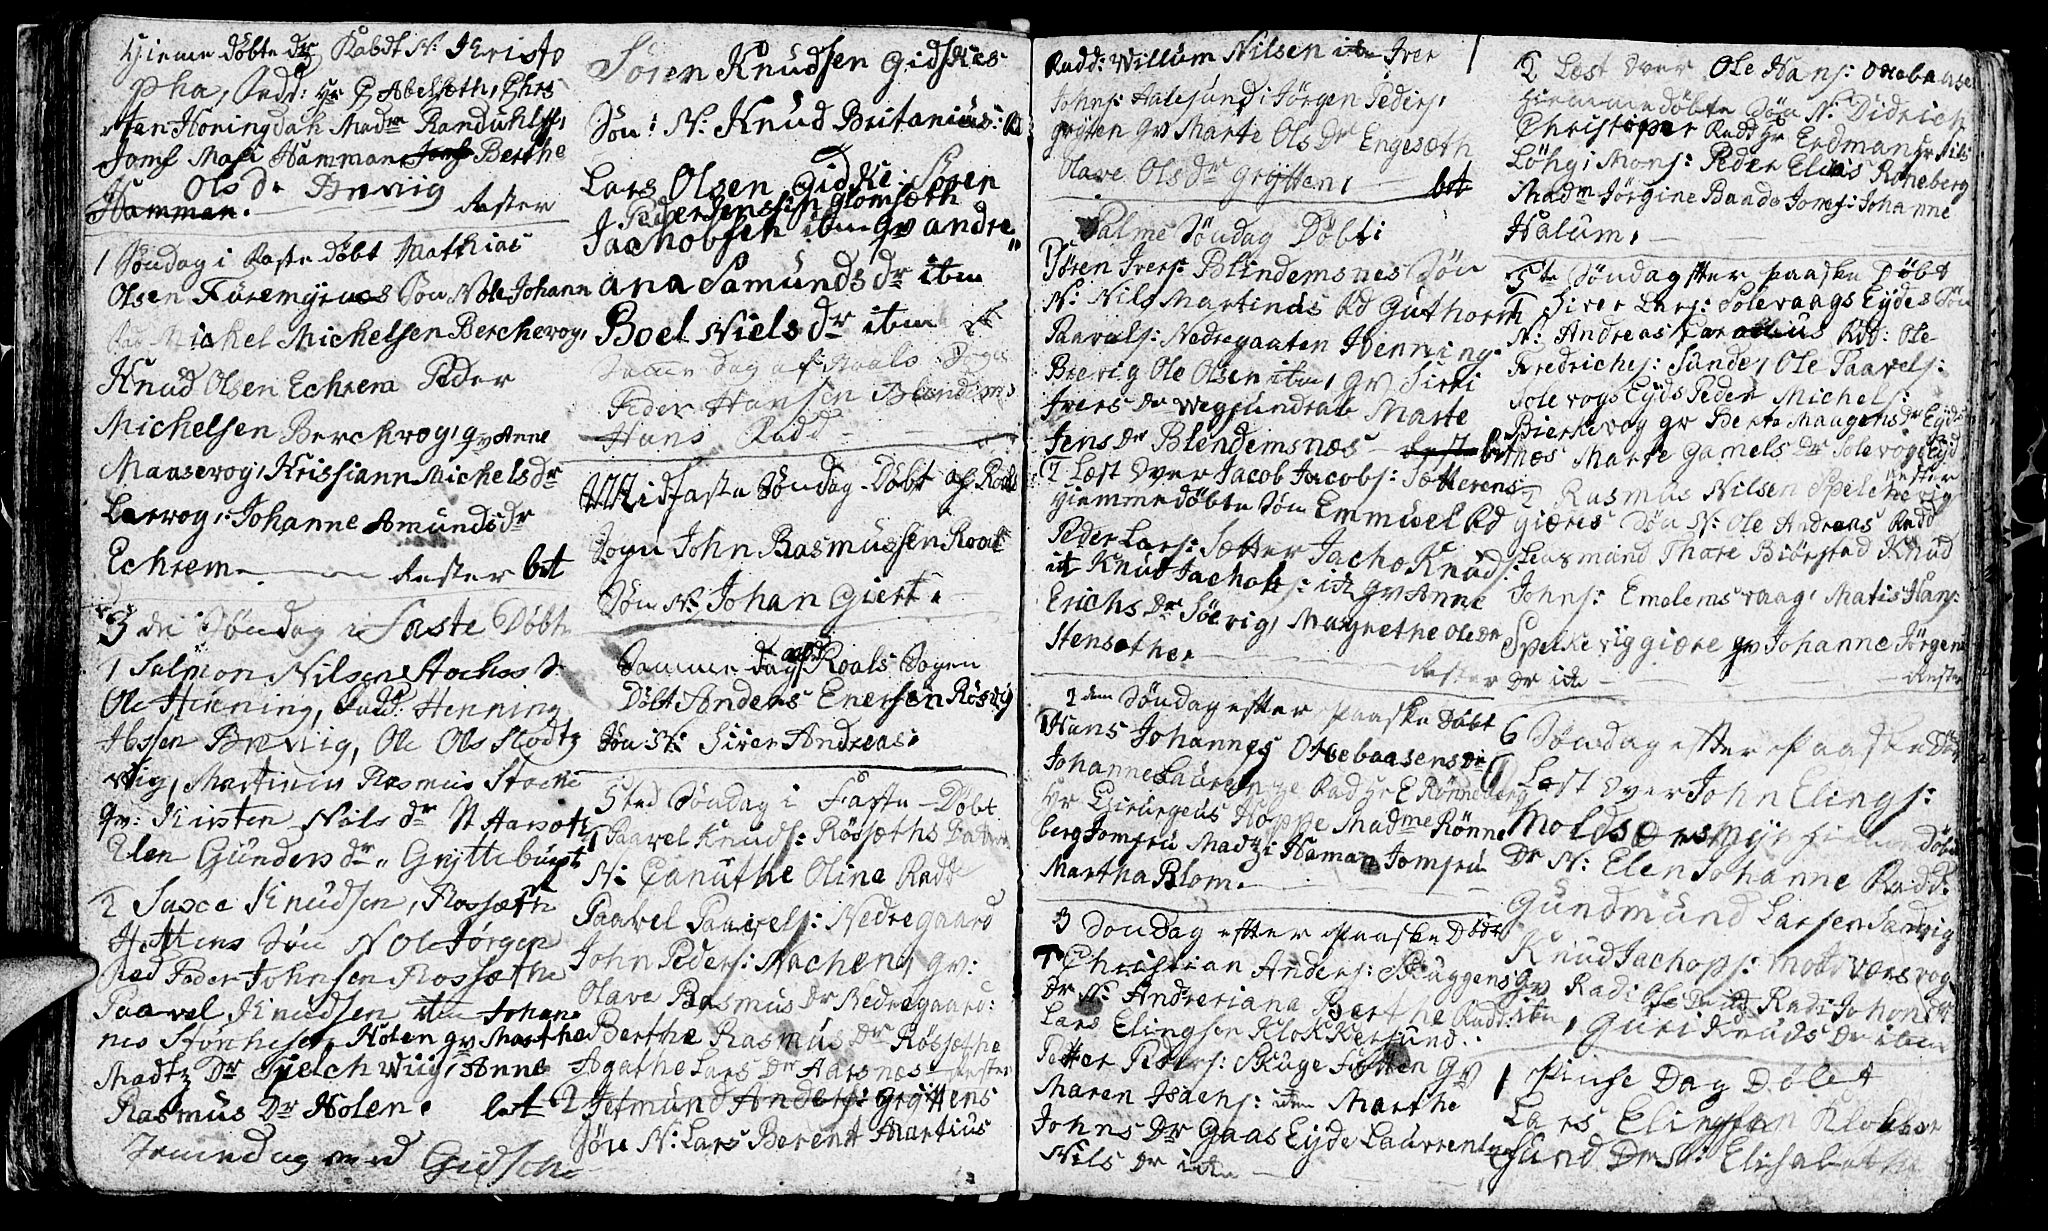 Hieme døbte dr Kabdt N: Kristo
pha, Fadd: Hr E Abelsæth, Chrs
ten Honingdah Madm Randuhlff,
Jomf Masi Hamman Jomf Berthe
Ols dr Brevig Rester
Hamman.
1 Søndag i Faste døbt Mathias
Olsen Furemyrens Søn N Ole Johann
Fad Michel Michelsen Berchevog,
Knud Olsen Echrem Peder
Michelsen Berchvog, gv Anne
Maasevog, Krissiann Michels dr
Larvog, Johanne Amunds dr
Echrem Rester bet
3 die Søndag i Faste Døbt
1 Salmon Nilsen Stochs S
Ole Henning, Fadd: Henning
Ibssen Brevig, Ole Ols Flodtz
vig, Martinus Rasmus Stocke
gv: Kirsten Nils dr
Elen Gunders dr Gryttebugt
2 Saxe Knudsen, Rossæth
Søn N Ole Jørgen
Fad Peder Johnsen Rossæthe
Paavel Knudsen itm Johan
nes Holen gv Marthe
Madtz Dr Spelchwiig, Anne
Rasmus Dr Holen. bet
Samedag ved Gidsche
Søren Knudsen Gidskes
Søn: N: Knud Britanius: Rd
Lars Olsen Gidke: Søren
Peder Jenssen Glomsæth
Jachobsen ibm gv andre
ana Samunds dr item
Boel Niels dr item
Samme dag af Roals Sogn
Peder Hansen Blendems
Hans Radd
Midfaste Søndag Døbt af Roals
Sogn John Rasmussen Roal
Søn N: Johan Giert.
Samme dag af Roals Sogen
Døbt Anders Enersen Røsvig
Søn N: Siver Andreas.
5ted Søndag i Faste Døbt
1 Paavel Knuds: Røssæths Datter
N: Canuthe Oline Radd
Paavel Paavels: Nedregaard
John Peders: Aachen, gv:
Olave Rasmus Dr Nedregaard:
Berthe Rasmus Dr Røssæthe
Agathe Lars Dr Aarsnæs Rester
2 Jetmund Anders: Gryttens
Søn N: Lars Berent Martius
Radd: Willum Nilsen itm Iver
Johns: Aalesund: Jørgen Peders,
gryten gv Marte Ols Dr Engesæth
Olave Ols dr Grytten, bet
Palme Søndag Døbt:
1 Søren Ivers: Blindemsnes Søn
N: Nils Martinus Rd Guthorm
Paavels: Nedregaaten Henning
Brevig Ole Olsen item, gv Sirri
Ivers Dr Wegsundtab Marte
Jens Dr Blendemsnæs Rester bet
2 Læst Over Jacob Jacobs: Sætterens
Hiemmedøbte Søn Emmuel Rd
Peder Lars: Sætter Jacho Knuds:
it Knud Jachobs: itm gv Anne
Erichs Dr Søevig, Magrethe Ole Dr
Hensethe. Rester
2den Søndag efter Paaske Døbt
1 Hans Johannes Otrebaasens Dr
Johanne Laurenze Rad Hr E Rønneberg
Hr Chirurgeus Hoppe Madme Rønne
berg Jomfru Madtzi Haman Jomfru
Martha Blom.
3 Søndag efter Paaske Døbt
1 Christian Anders: Skuggens
Dr N: Andreriana Berthe Radd:
Lars Elingsen Klokkersund.
Petter Peders: Skuge Sætten Gv
Maren Isachs: itm Marthe
Johns Dr Gaas Eyde Laurense
Nils Dr itm
2 Læst Over Ole Hans: Otrebaase
Hiemmedøbte Søn N: Didrich
Christoper Radd Hr Erdman Hr Nils
Løhg: Mons: Peder Elias Røneberg
Madm Jørgine Baade Jomf: Johanne
Halum,
5te Søndag efter Paaske Døbt
1 Siver Lars: Solevaags Eydes Søn
N: Andreas Rdd: Ole
Fredrichs: Sunde, Ole Paavels:
Solevogs Eyds Peder Michels:
Bierkevog gv Berte Maagens Dr Eyds
næs Marte Gamels Dr Solevogs Eyd
Rester
2 Rasmus Nilsen Spelchevig
giæres Søn N: Ole Andreas Radd
Rasmund Thore Biørstad Knud
Johns: Emblemsvaag, Matis Hans:
Spelkeviggiære gv Johanne Jørgens
Dr itm Rester
6 Søndag efter Paaske Døbt
1 Læst Over John Elings:
Moldsersmyr Hieme døbte
Dr N: Elen Johanne Radd:
Gundmund Larsen Sandvig
Knud Jachops: Moldværsvog
Gv Radi Radi Johans Dr
itm, Guri Knuds Dr item
1 Pinse Dag Døbt
Lars Elingsen Klokker
Sund Dr N: Elisabetha